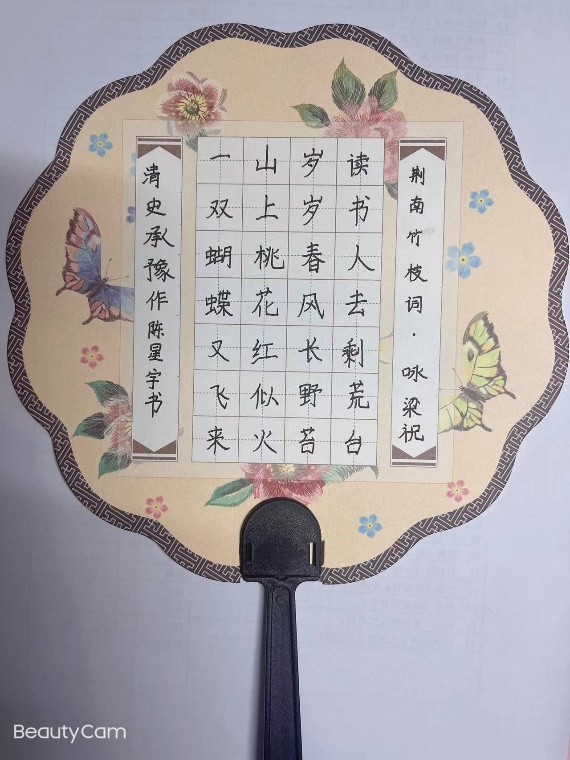 荆南竹枝词·咏梁祝
读书人去剩荒台
岁岁春风长野苔
山上桃花红似火
一双蝴蝶又飞来
清史承豫作陈星宇书
BeautyCam